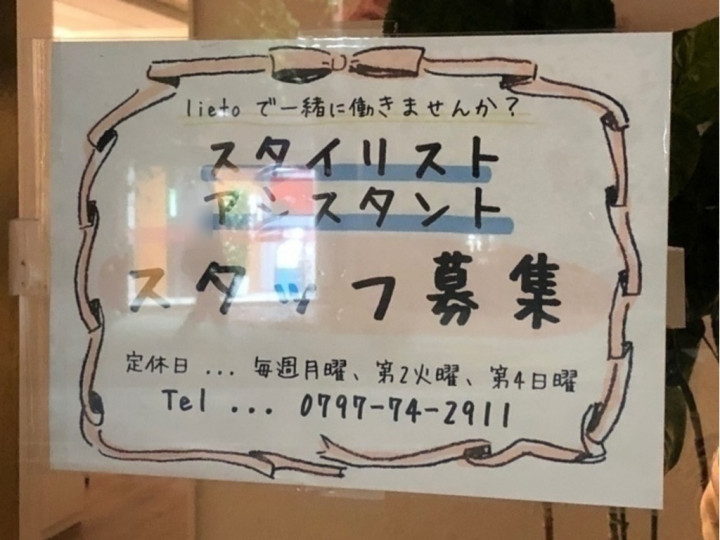 lietoで一緒に働きませんか？
スタイリスト
アシスタント
スタッフ募集
定休日...毎週月曜、第2火曜、第4日曜
Tel...0797-74-2911